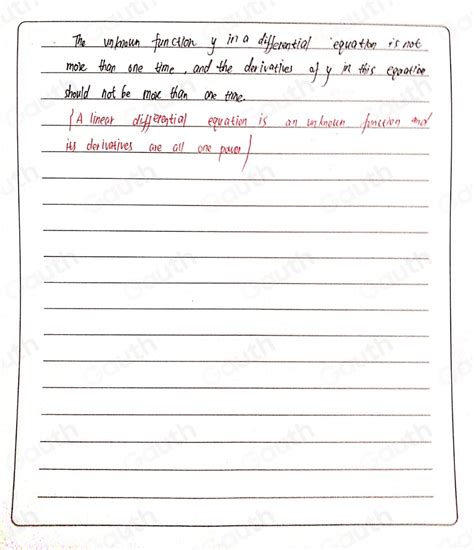 The unknown function y in a differential equation is not
more than one time, and the derivatives of y in this equation
should not be more than one time.
(A linear differential equation is an unknown function and
its derivatives are all one power)